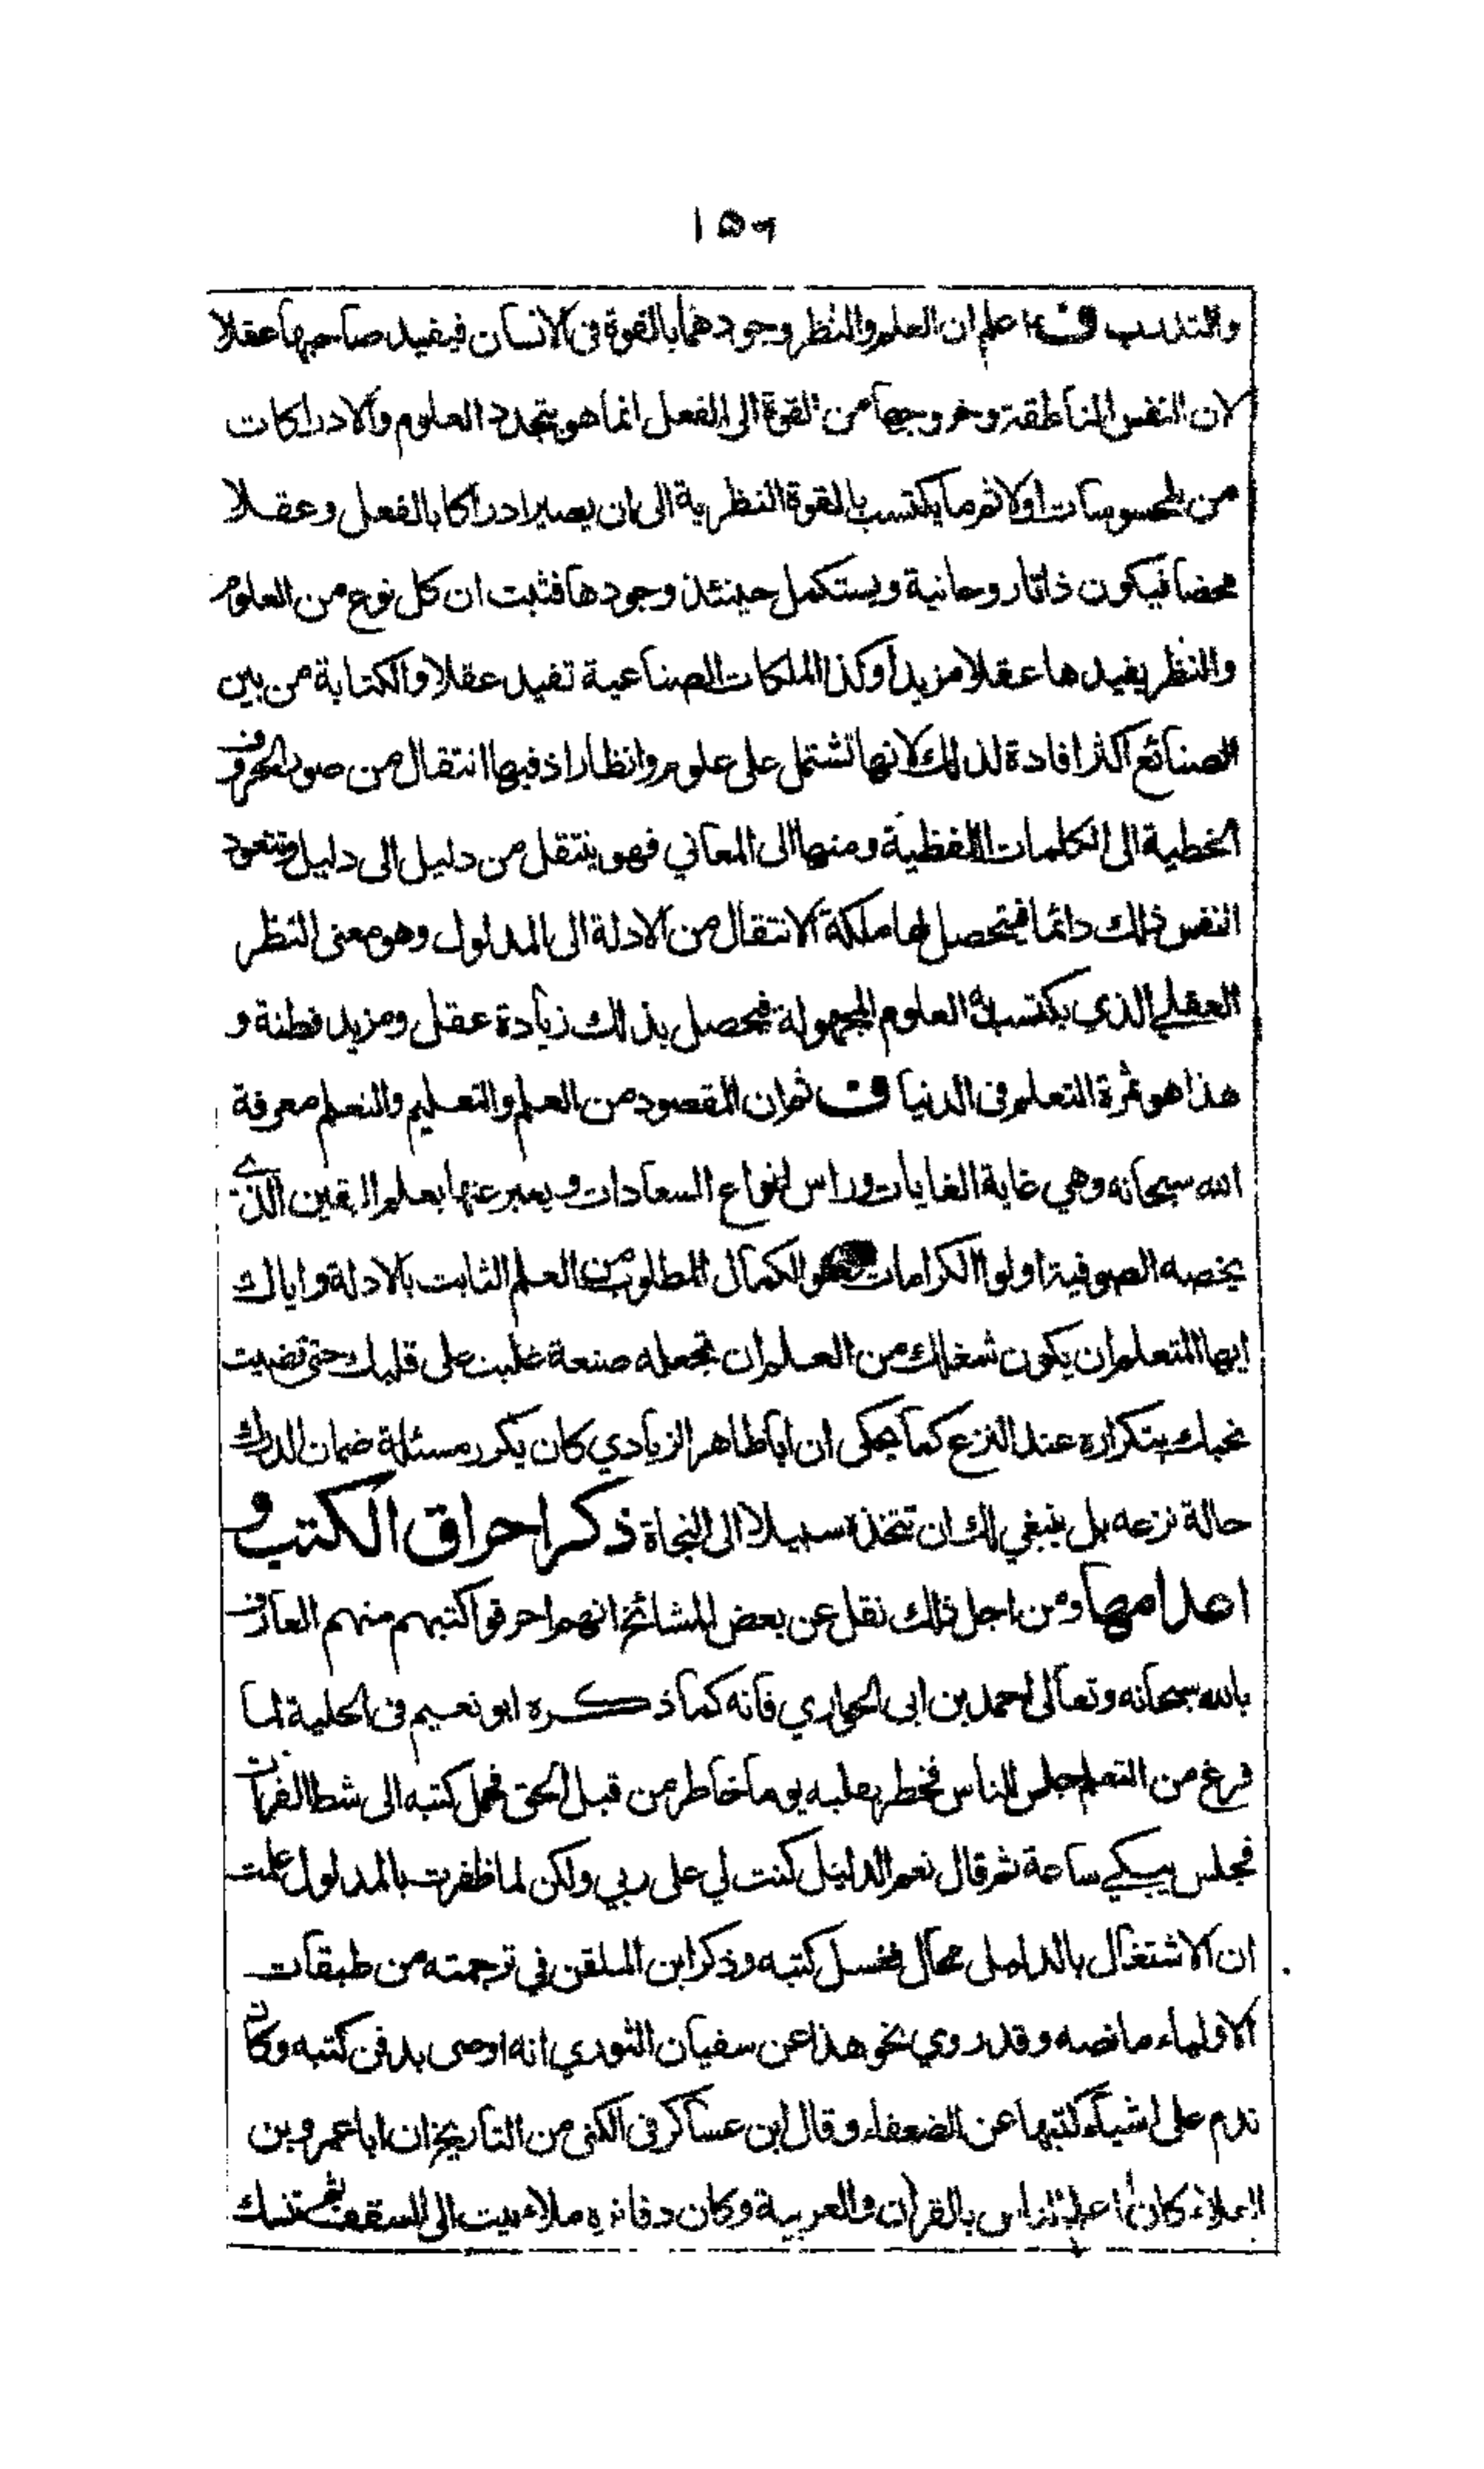 ١٥٦
والتدرب ف اعلم ان العلم والنظر وجودهما بالقوة فى الانسان فيفيد صاحبها عقلا
لان النفس الناطقة وخروجها من القوة الى الفعل انما هو بتجدد العلوم والادراكات
من المحسوسات اولا ثم ما يكتسب بالقوة النظرية الى ان يصير ادراكا بالفعل وعقلا
محضا فيكون ذاتا روحانية ويستكمل حينئذ وجودها فثبت ان كل نوع من العلوم
والنظر يفيدها عقلا مزيدا وكذا الملكات الصناعية تفيد عقلا والكتابة من بين
الصنائع اكثر افادة لذلك لانها تشتمل على علوم وانظار اذ فيها انتقال من صور الحروف
الخطية الى الكلمات اللفظية ومنها الى المعاني فهو ينتقل من دليل الى دليل وتتعود
النفس ذلك دائما فيتحصل لها ملكة الانتقال من الادلة الى المدلول وهو معنى النظر
العقلي الذي يكتسب به العلوم المجهولة فيحصل بذلك زيادة عقل ومزيد فطنة و
هذا هو ثمرة التعلم فى الدنيا ف ثم ان المقصود من العلم والتعليم والتعلم معرفة
الله سبحانه وهي غاية الغايات وراس انواع السعادات ويعبر عنها بعلم اليقين الذي
يخصه الصوفية اولوا الكرامات وهو الكمال المطلوب من العلم الثابت بالادلة واياك
ايها المتعلم ان يكون شغلك من العلم ان تجعله صنعة غلبت على قلبك حتى قضيت
نحبك بتكراره عند النزع كما يحكى ان اباطاهر الزيادي كان يكرر مسئلة ضمان الدرك
حالة نزعه بل ينبغي لك ان تتخذه سبيلا الى النجاة ذكر احراق الكتب و
اعدامها ومن اجل ذلك نقل عن بعض المشائخ انهم احرقوا كتبهم منهم العارف
بالله سبحانه وتعالى احمد بن ابى الحواري فانه كما ذكره ابو نعيم فى الحلية لما
فرغ من التعلم جلس للناس فخطر بقلبه يوما خاطر من قبل الحق فحمل كتبه الى شط الفرات
فجلس يبكي ساعة ثم قال نعم الدليل كنت لي على ربي ولكن لما ظفرت بالمدلول علمت
ان الاشتغال بالدليل محال فغسل كتبه وذكر ابن الملقن في ترجمته من طبقات
الاولياء ما نصه وقد روي نحو هذا عن سفيان الثوري انه اوصى بدفن كتبه وكان
ندم على اشياء كتبها عن الضعفاء وقال ابن عساكر فى الكنى من التاريخ ان اباعمرو بن
العلاء كان اعلم الناس بالقرأن والعربية وكان دفاتره ملاء بيت الى السقف ثم تنسك